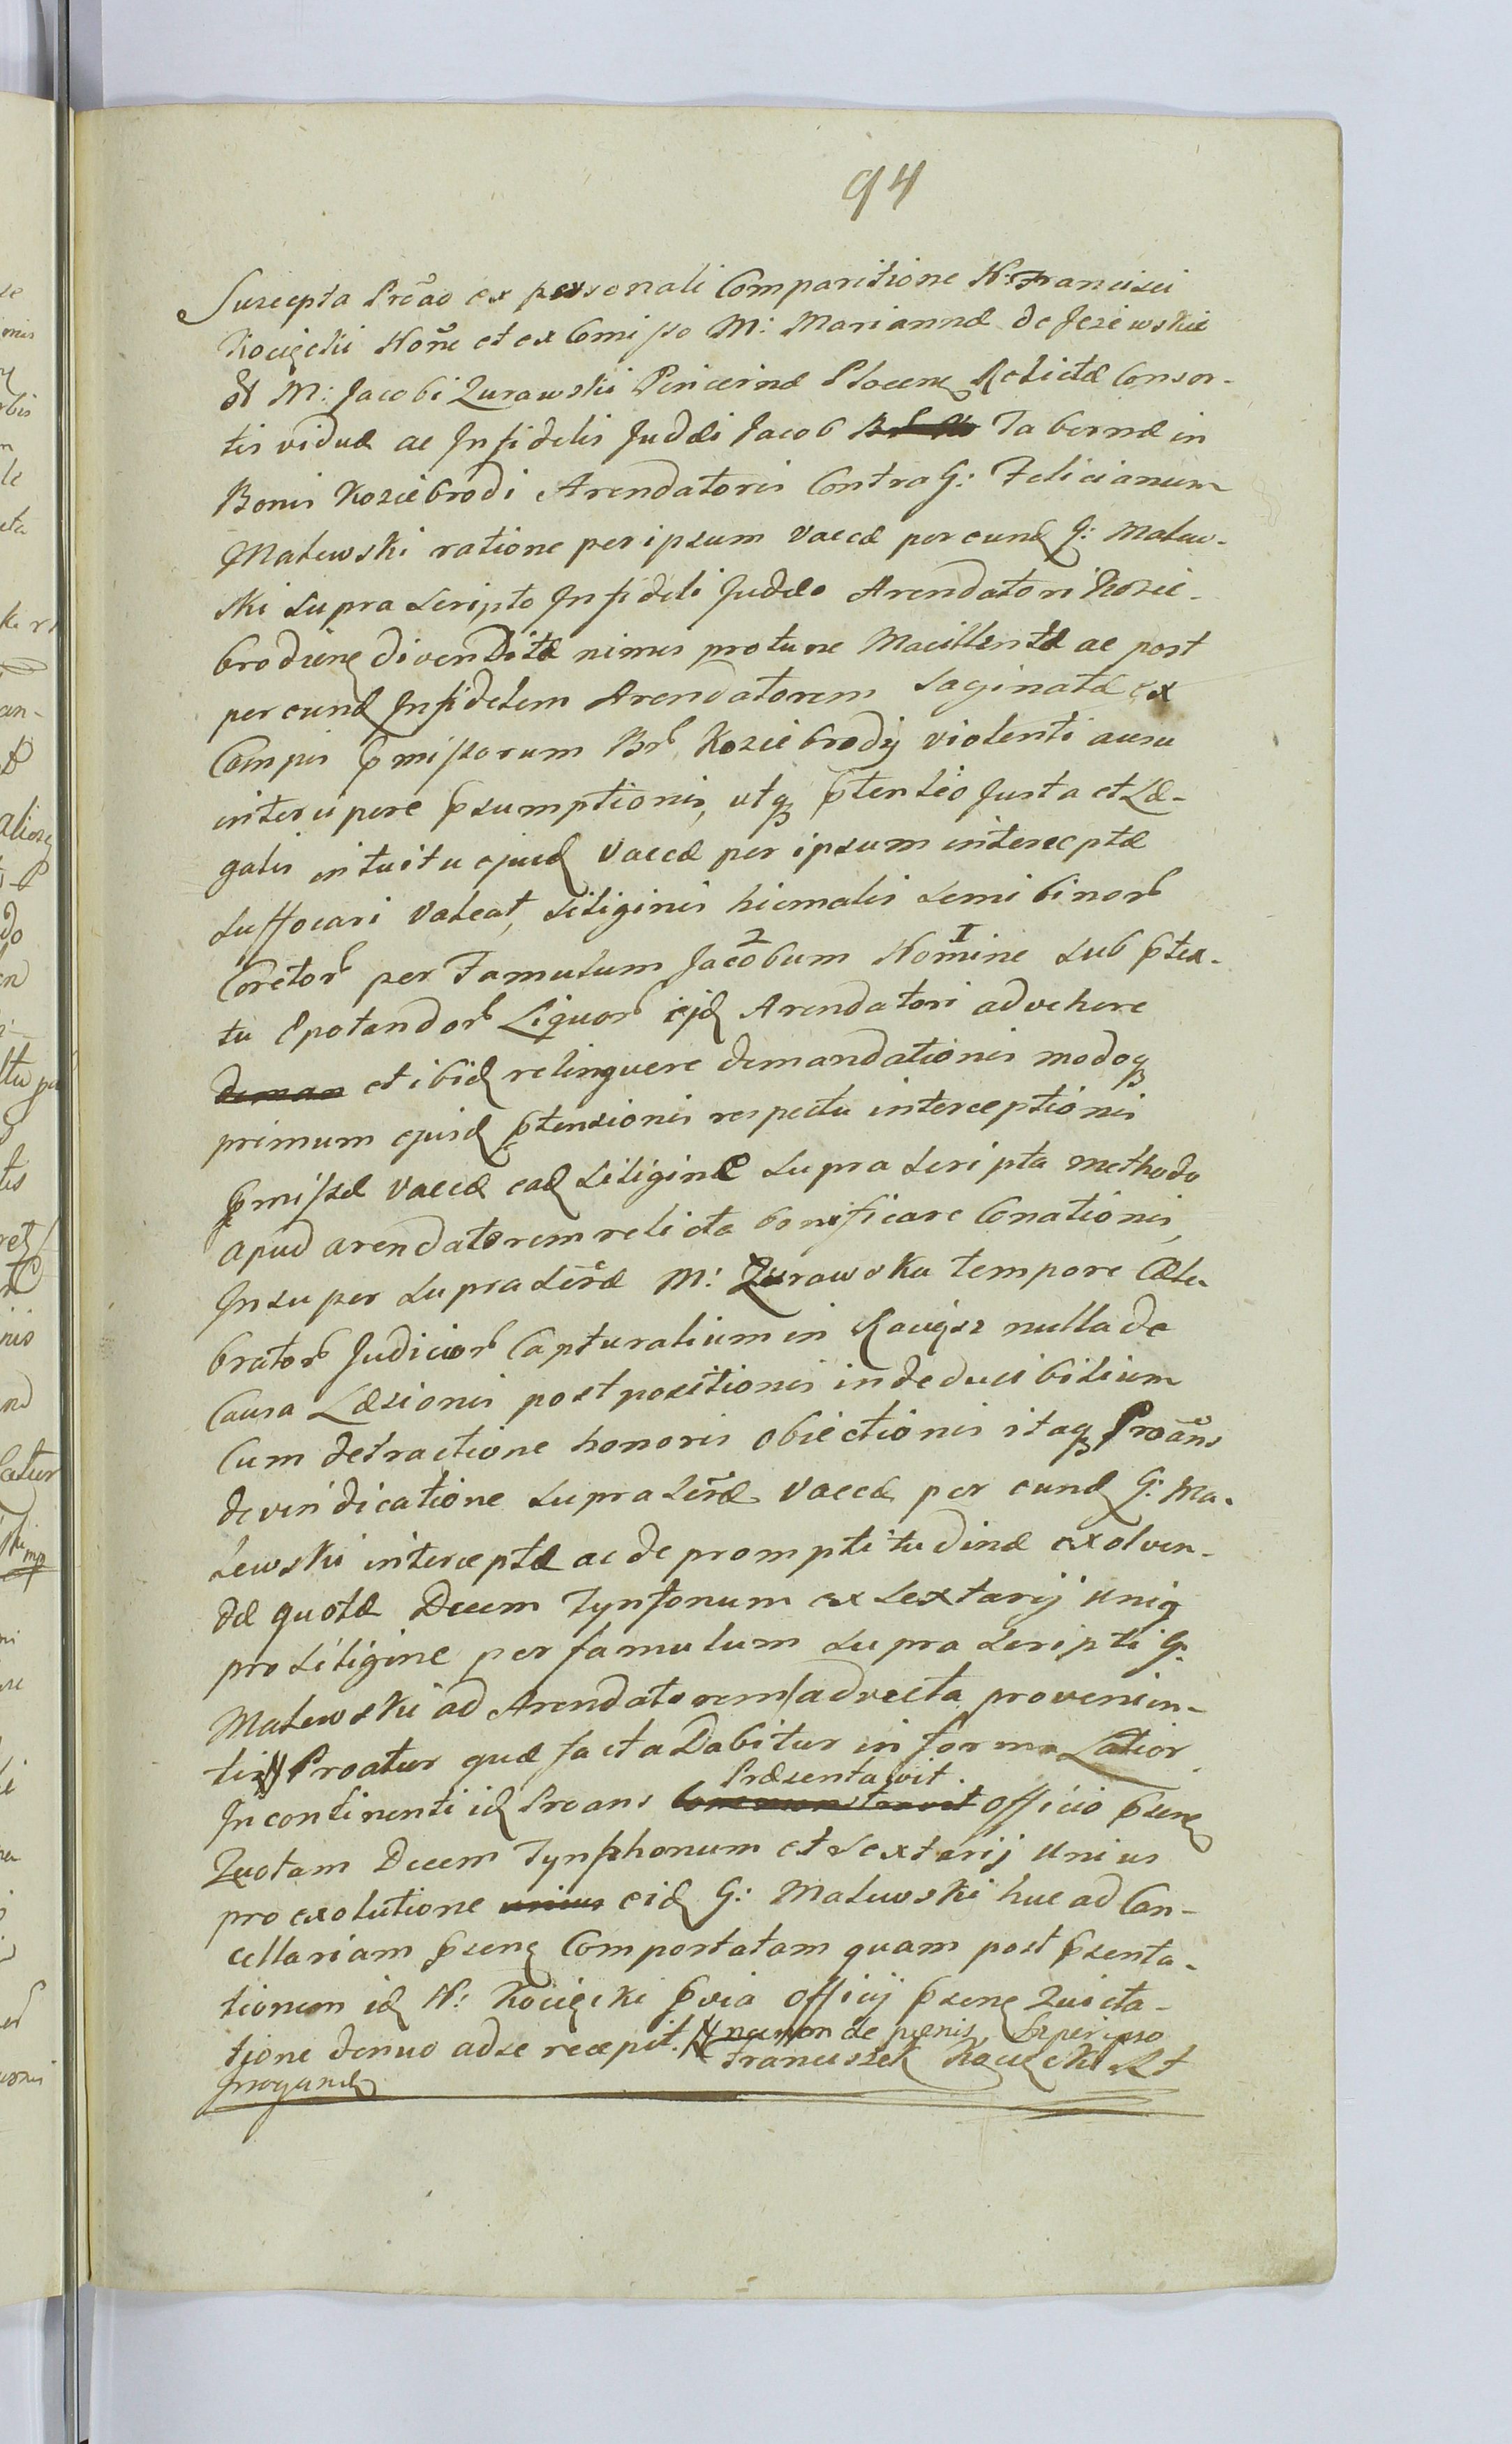 94
Suscepta Prõao ex personali Comparitione N: Francisci
Kocięcki Noñe et ex Comisso M: Mariannæ de Jezewskie
M: Jacobi Zurawski Pincernæ Plocen Relictæ Consor-
tis viduæ ac Infidelis Judæi Jacob Tabernæ in
Bonis Koziebrodi Arendatoris Contra G: Felicianum
Malewski ratione per ipsum vaccæ per eund G: Malew-
ski supra scripto Infideli Judæo Arendatori Kozie-
brodzien divenditæ nimis protunc Macillentæ ac post
per eund Infidelem Arendatorem saginatæ ex
Campis pmissorum Br Koziebrody violenti ausu
interripere psumptionis, utq ptensio Justa et Læ-
galis intuitu ejusd Vaccæ per ipsum interceptæ
suffocari valeat, siliginis hiemalis semi binor
Coretor per Famulum Jacobum 2 Nomine I sub ptex-
tu Epotandor Liquor ejd Arendatori advehere
deman et ibid relinquere demandationis modoq
primum ejusd ptensionis respectu interceptionis
pmissæ Vaccæ ead siligine supra scripta methodo
apud arendatorem relicta bonificare Conationis,
Insuper suprascræ M: Zurawska tempore Cæle-
brator Judicior Capturalium in Raciąsz nulla de
Causa Læsionis postpositionis indeducibilium
Cum detractione honoris obiectionis itaq Proãns
de vindicatione suprascræ Vaccæ per eund G: Ma-
lewski interceptæ ac de promptitudine exolven-
dæ quotæ Decem Tynfonum ex sextarij unig
pro siligine per famulum supra scripti G:
Malewski ad Arendatorem advecta provenien-
tis Proatur quæ facta Dabitur in forma Latior.
Præsentavit.
In continenti id Proans Officio psen
Quotam Decem Tynphonum et sextarij unius
pro exolutione unius eid G: Malewski huc ad Can-
cellariam psen Comportatam quam post psenta-
tionem id N: Kocięcki pvia officij psen Quieta-
tione denuo ad se recepit. necnon de pænis, super ipso
Irrogand Franciszek Kocięcki